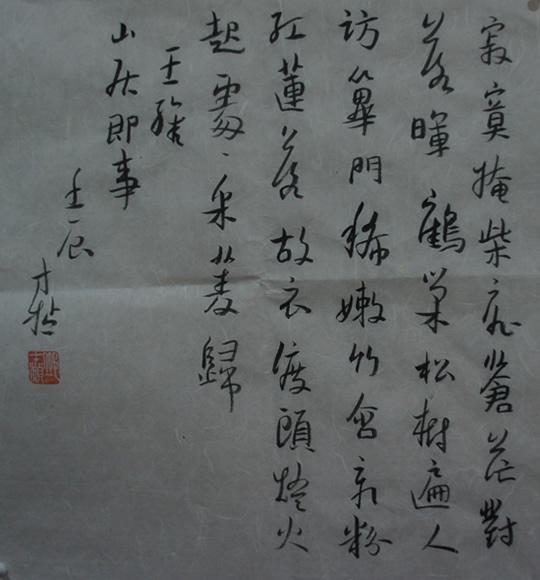 寂寞掩柴扉蒼茫對
落暉鶴巢松樹遍人
訪篳門稀嫩竹含新粉
紅蓮落故衣渡頭燈火
起處々采菱歸
王維
山居即事
壬辰